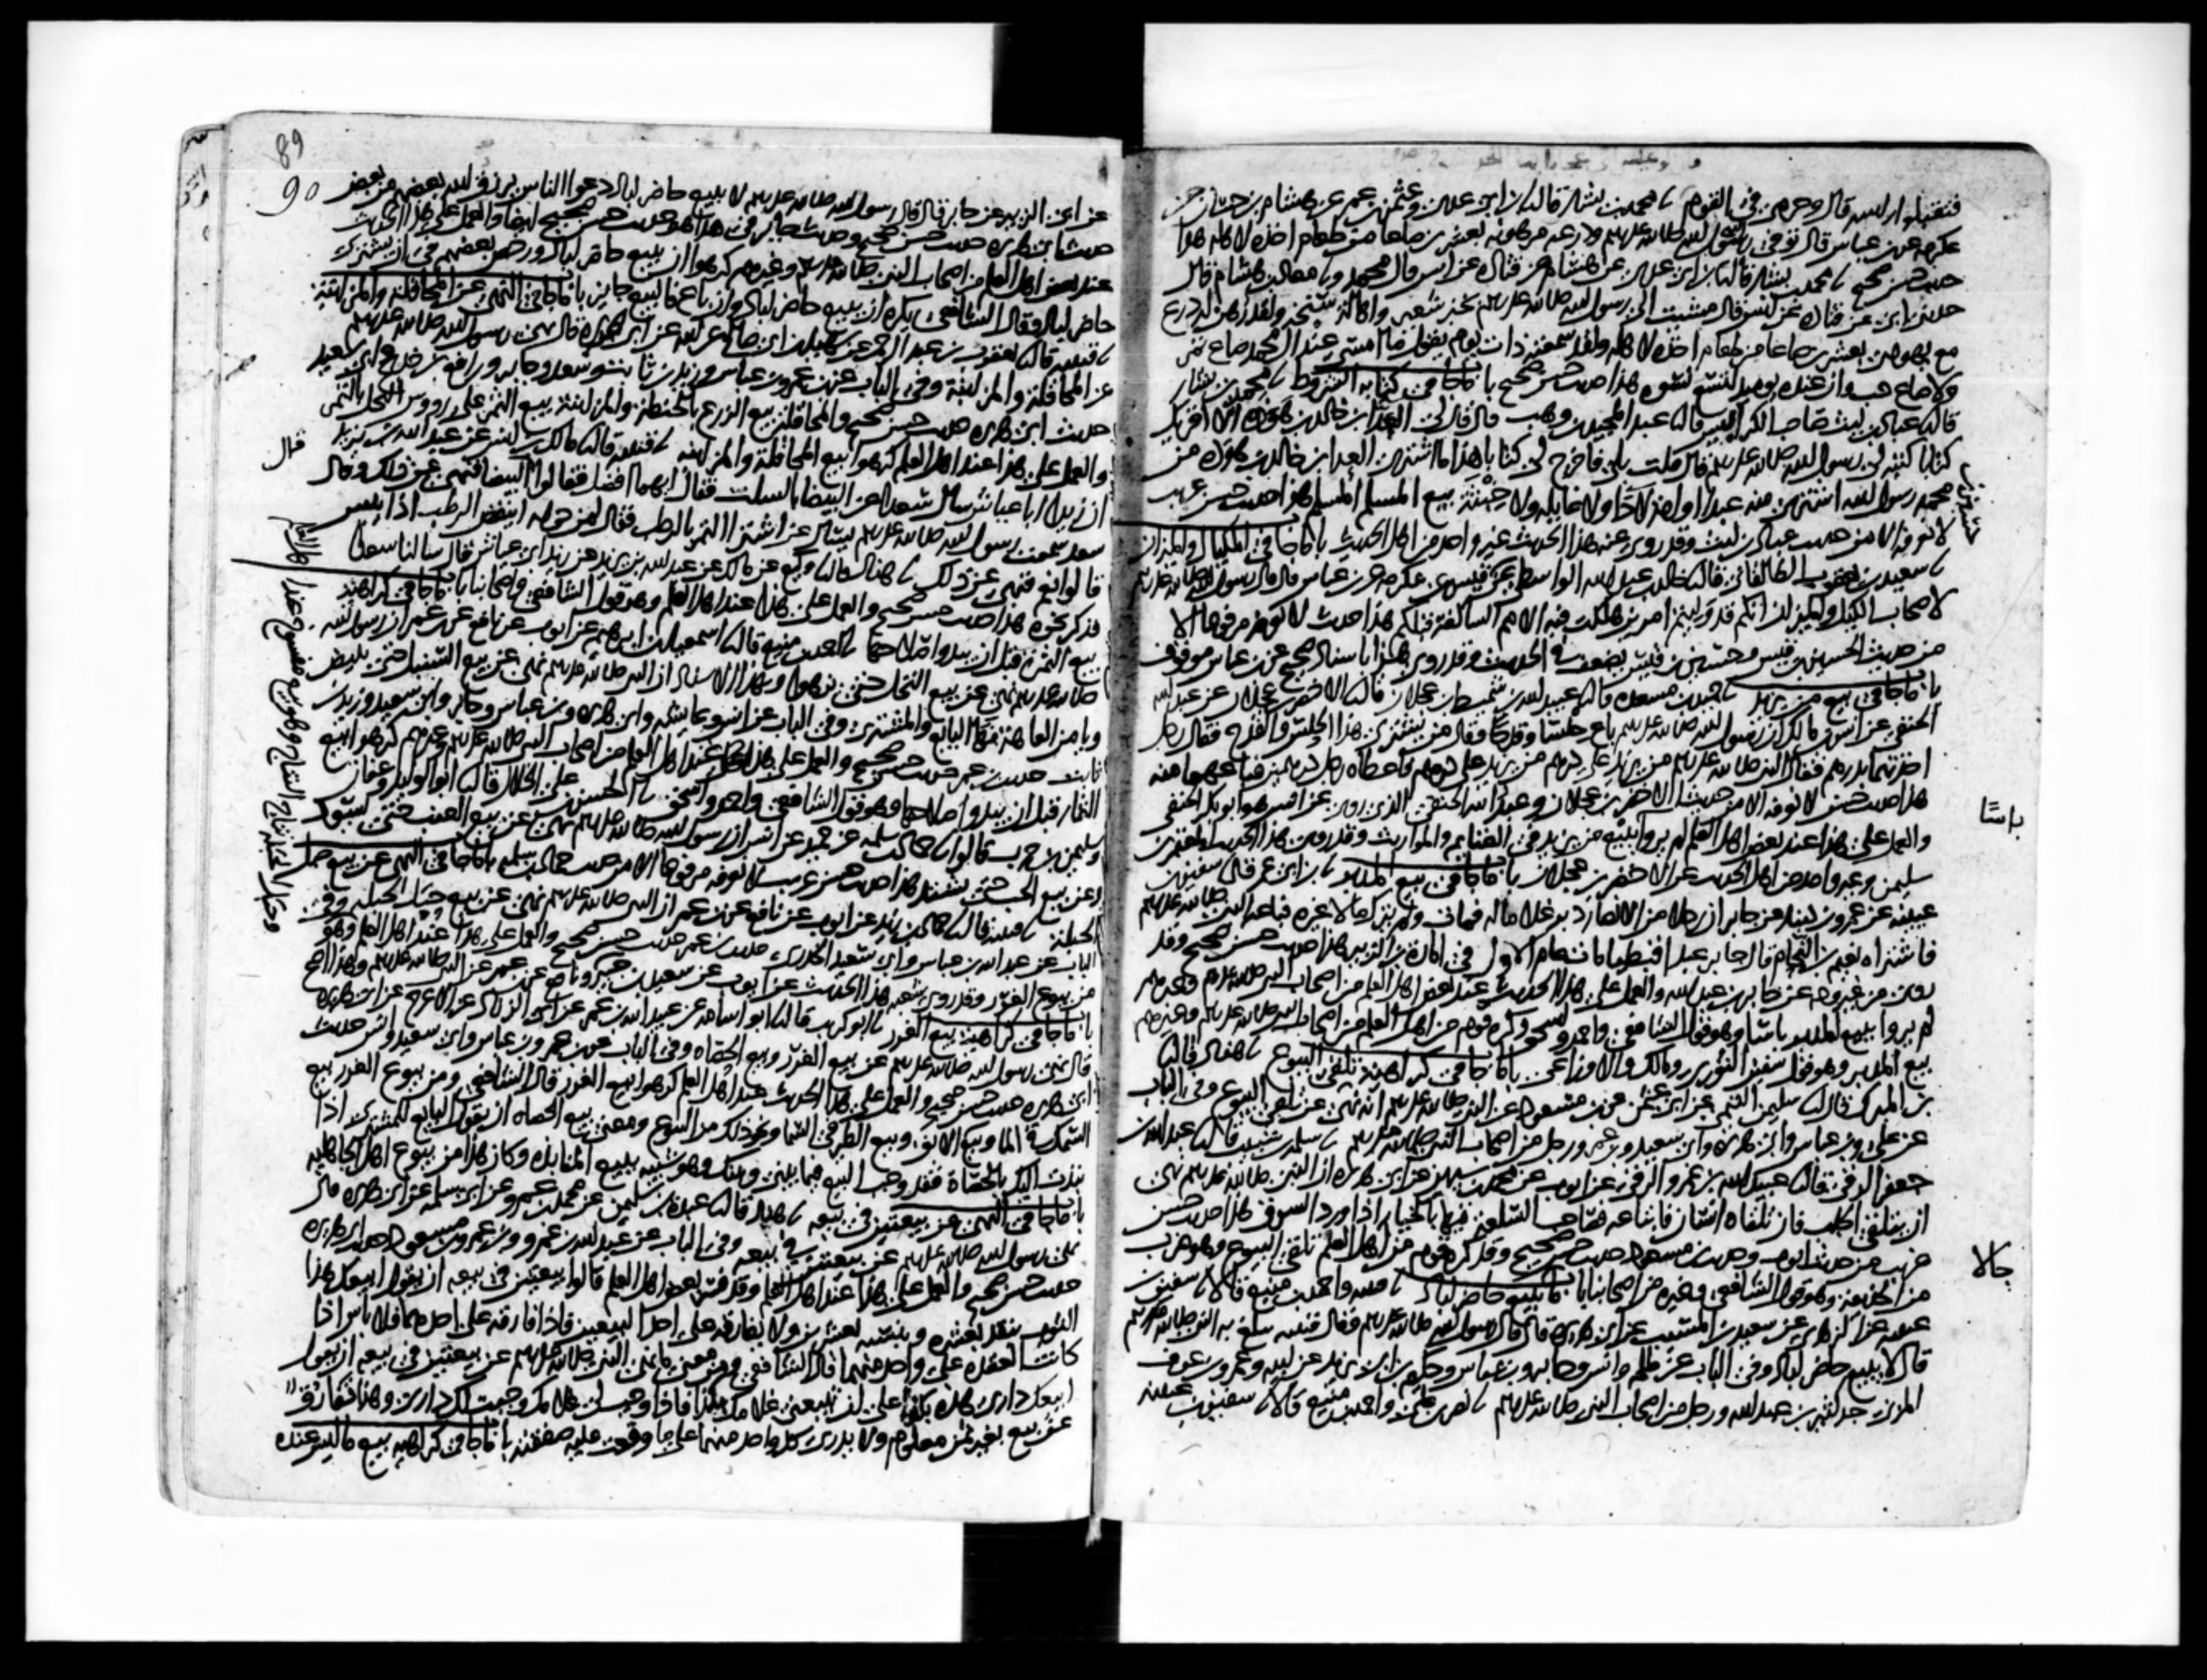 فتقبلوا رأسه قال وحرمي في القوم نا محمد بن بشار قال نا ابن ابي عدي وعثمن بن عمر عن هشام بن حسان عن
عكرمة عن ابن عباس قال توفي رسول الله صلى الله عليه وسلم ودرعه مرهونة بعشرين صاعا من طعام اخذه لاهله هذا
حديث حسن صحيح نا محمد بن بشار قال نا ابن ابي عدي عن هشام عن قتادة عن انس قال محمد ونا معاذ بن هشام قال
حدثني ابي عن قتادة عن انس قال مشيت الى رسول الله صلى الله عليه وسلم بخبز شعير واهالة سنخة ولقد رهن له درع
مع يهودي بعشرين صاعا من طعام اخذه لاهله ولقد سمعته ذات يوم يقول ما امسى عند آل محمد صاع تمر
ولا صاع حب وان عنده يومئذ لتسع نسوة هذا حديث حسن صحيح باب ما جا في كتابة الشروط نا محمد بن بشار
قال نا عباد بن ليث صاحب الكرابيس قال نا عبد المجيد بن وهب قال قال لي العدا بن خالد بن هوذة الا اقريك
كتابا كتبه لي رسول الله صلى الله عليه وسلم قال قلت بلى فاخرج لي كتابا هذا ما اشترى العدا بن خالد بن هوذة من
محمد رسول الله اشترى منه عبدا او امة لا دا ولا غايلة ولا خبثة بيع المسلم المسلم هذا حديث حسن غريب
لا نعرفه الا من حديث عباد بن ليث وقد روى عنه هذا الحديث غير واحد من اهل الحديث باب ما جا في المكيال والميزان
نا سعيد بن يعقوب الطالقاني قال نا خالد بن عبد الله الواسطي عن حسين بن قيس عن عكرمة عن ابن عباس قال قال رسول الله صلى الله عليه وسلم
لاصحاب الكيل والميزان انكم قد وليتم امرين هلكت فيه الامم السالفة قبلكم هذا حديث لا نعرفه مرفوعا الا
من حديث الحسين بن قيس وحسين بن قيس يضعف في الحديث وقد روي هذا باسناد صحيح عن ابن عباس موقوف
باب ما جا في بيع من يزيد نا حميد بن مسعدة قال نا عبيد الله بن شميط بن عجلان قال نا الاخضر بن عجلان عن عبد الله
الحنفي عن انس بن مالك ان رسول الله صلى الله عليه وسلم باع حلسا وقدحا وقال من يشتري هذا الحلس والقدح فقال رجل
اخذتهما بدرهم فقال النبي صلى الله عليه وسلم من يزيد على درهم من يزيد على درهم فاعطاه رجل درهمين فباعهما منه
هذا حديث حسن لا نعرفه الا من حديث الاخضر بن عجلان وعبد الله الحنفي الذي روى عن انس هو ابو بكر الحنفي
والعمل على هذا عند بعض اهل العلم لم يروا باسا ببيع من يزيد في الغنايم والمواريث وقد روى هذا الحديث المعتمر بن
سليمن وغير واحد من اهل الحديث عن الاخضر بن عجلان باب ما جا في بيع المدبر نا ابن ابي عمر قال نا سفين بن
عيينة عن عمرو بن دينار عن جابر ان رجلا من الانصار دبر غلاما له فمات ولم يترك مالا غيره فباعه النبي صلى الله عليه وسلم
فاشتراه نعيم بن النحام قال جابر عبدا قبطيا مات عام الاول في امارة ابن الزبير هذا حديث حسن صحيح وقد
روي من غير وجه عن جابر بن عبد الله والعمل على هذا الحديث عند بعض اهل العلم من اصحاب النبي صلى الله عليه وسلم وغيرهم
لم يروا ببيع المدبر باسا وهو قول الشافعي واحمد واسحق وكره قوم من اهل العلم من اصحاب النبي صلى الله عليه وسلم وغيرهم
بيع المدبر وهو قول سفين الثوري ومالك والاوزاعي باب ما جا في كراهية تلقي البيوع نا هناد قال نا
ابن المبارك قال نا سليمن التيمي عن ابي عثمن عن ابن مسعود عن النبي صلى الله عليه وسلم انه نهى عن تلقي البيوع وفي الباب
عن علي وابن عباس وابي هريرة وابي سعيد وابن عمر ورجل من اصحاب النبي صلى الله عليه وسلم نا سلمة بن شبيب قال نا عبد الله بن
جعفر الرقي قال نا عبيد الله بن عمرو الرقي عن ايوب عن محمد بن سيرين عن ابي هريرة ان النبي صلى الله عليه وسلم نهى
ان يتلقى الجلب فان تلقاه انسان فابتاعه فصاحب السلعة فيها بالخيار اذا ورد السوق هذا حديث حسن
غريب من حديث ايوب وحديث ابن مسعود حديث حسن صحيح وقد كره قوم من اهل العلم تلقي البيوع وهو ضرب
من الخديعة وهو قول الشافعي وغيره من اصحابنا باب ما جا لا يبيع حاضر لباد نا قتيبة واحمد بن منيع قالا نا سفين بن
عيينة عن الزهري عن سعيد بن المسيب عن ابي هريرة قال قال رسول الله صلى الله عليه وسلم وقال قتيبة يبلغ به النبي صلى الله عليه وسلم
قال لا يبيع حاضر لباد وفي الباب عن طلحة وانس وجابر وابن عباس وحكيم بن ابي يزيد عن ابيه وعمرو بن عوف
المزني جد كثير بن عبد الله ورجل من اصحاب النبي صلى الله عليه وسلم نا نصر بن علي واحمد بن منيع قالا نا سفين بن عيينة
باسًا
جالا
89
90
عن ابي الزبير عن جابر قال قال رسول الله صلى الله عليه وسلم لا يبيع حاضر لباد دعوا الناس يرزق الله بعضهم من بعض
حديث ابي هريرة حديث حسن صحيح وحديث جابر في هذا هو حديث حسن صحيح ايضا والعمل على هذا الحديث
عند بعض اهل العلم من اصحاب النبي صلى الله عليه وسلم وغيرهم كرهوا ان يبيع حاضر لباد ورخص بعضهم في ان يشتري
حاضر لباد وقال الشافعي يكره ان يبيع حاضر لباد وان باع فالبيع جايز باب ما جا في النهي عن المحاقلة والمزابنة
نا قتيبة قال نا يعقوب بن عبد الرحمن عن سهيل بن ابي صالح عن ابيه عن ابي هريرة قال نهى رسول الله صلى الله عليه وسلم
عن المحاقلة والمزابنة وفي الباب عن ابن عمر وابن عباس وزيد بن ثابت وسعد وجابر ورافع بن خديج وابي سعيد
حديث ابي هريرة حديث حسن صحيح والمحاقلة بيع الزرع بالحنطة والمزابنة بيع الثمر على رووس النخل بالتمر
والعمل على هذا عند اهل العلم كرهوا بيع المحاقلة والمزابنة نا قتيبة قال نا مالك بن انس عن عبد الله بن يزيد
ان زيدا ابا عياش سال سعدا عن البيضا بالسلت فقال ايهما افضل فقالوا البيضا فنهى عن ذلك وقال
قال
سعد سمعت رسول الله صلى الله عليه وسلم يسال عن اشترا التمر بالرطب فقال لمن حوله اينقص الرطب اذا يبس
قالوا نعم فنهى عن ذلك نا هناد قال نا وكيع عن مالك عن عبد الله بن يزيد عن زيد ابي عياش قال سالنا سعدا
فذكر نحوه هذا حديث حسن صحيح والعمل على هذا عند اهل العلم وهو قول الشافعي واصحابنا باب ما جا في كراهية
بيع الثمرة قبل ان يبدوا صلاحها نا احمد بن منيع قال نا اسمعيل بن ابرهيم عن ايوب عن نافع عن ابن عمر ان رسول الله
صلى الله عليه وسلم نهى عن بيع النخل حتى تزهوا وبهذا الاسناد ان النبي صلى الله عليه وسلم نهى عن بيع السنبل حتى يبيض
ويامن العاهة نهى البايع والمشتري وفي الباب عن انس وعايشة وابي هريرة وابن عباس وجابر وابي سعيد وزيد بن
ثابت حديث ابن عمر حديث حسن صحيح والعمل على هذا عند اهل العلم من اصحاب النبي صلى الله عليه وسلم وغيرهم كرهوا بيع
الثمار قبل ان يبدوا صلاحها وهو قول الشافعي واحمد واسحق نا الحسن بن علي الخلال قال نا ابو الوليد وعفان
وسليمن بن حرب قالوا نا حماد بن سلمة عن حميد عن انس ان رسول الله صلى الله عليه وسلم نهى عن بيع العنب حتى يسود
وعن بيع الحب حتى يشتد هذا حديث حسن غريب لا نعرفه مرفوعا الا من حديث حماد بن سلمة باب ما جا في النهي عن بيع حبل
الحبلة نا قتيبة قال نا حماد بن زيد عن ايوب عن نافع عن ابن عمر ان النبي صلى الله عليه وسلم نهى عن بيع حبل الحبلة وفي
الباب عن عبد الله بن عباس وابي سعيد الخدري حديث ابن عمر حديث حسن صحيح والعمل على هذا عند اهل العلم وهو
من بيوع الغرر وقد روى شعبة هذا الحديث عن ايوب عن سعيد بن جبير ونافع عن ابن عمر عن النبي صلى الله عليه وسلم وهذا اصح
باب ما جا في كراهية بيع الغرر نا ابو كريب قال نا ابو اسامة عن عبيد الله بن عمر عن ابي الزناد عن الاعرج عن ابي هريرة
قال نهى رسول الله صلى الله عليه وسلم عن بيع الغرر وبيع الحصاة وفي الباب عن ابن عمر وابن عباس وابي سعيد وانس حديث
ابي هريرة حديث حسن صحيح والعمل على هذا الحديث عند اهل العلم كرهوا بيع الغرر قال الشافعي ومن بيوع الغرر بيع
السمك في الما وبيع الابق وبيع الطير في السما ونحو ذلك من البيوع ومعنى بيع الحصاة ان يقول البايع للمشتري اذا
نبذت اليك بالحصاة فقد وجب البيع فيما بيني وبينك وهو شبيه ببيع المنابذة وكان هذا من بيوع اهل الجاهلية
باب ما جا في النهي عن بيعتين في بيعة نا هناد قال نا عبدة بن سليمن عن محمد بن عمرو عن ابي سلمة عن ابي هريرة قال
نهى رسول الله صلى الله عليه وسلم عن بيعتين في بيعة وفي الباب عن عبد الله بن عمرو وابن عمر وابن مسعود حديث ابي هريرة
حديث حسن صحيح والعمل على هذا عند اهل العلم وقد فسر بعض اهل العلم قالوا بيعتين في بيعة ان يقول ابيعك هذا
الثوب بنقد بعشرة وبنسية بعشرين ولا يفارقه على احد البيعين فاذا فارقه على احدهما فلا باس اذا
كانت العقدة على واحد منهما قال الشافعي ومن معنى ما نهى النبي صلى الله عليه وسلم عن بيعتين في بيعة ان يقول
ابيعك داري هذه بكذا على ان تبيعني غلامك بكذا فاذا وجب لي غلامك وجبت لك داري وهذا تفارق
عن بيع بغير ثمن معلوم ولا يدري كل واحد منهما على ما وقعت عليه صفقته باب ما جا في كراهية بيع ما ليس عنده
وحبل الحبلة نتاج النتاج وهو بيع مفسوخ عند اهل العلم